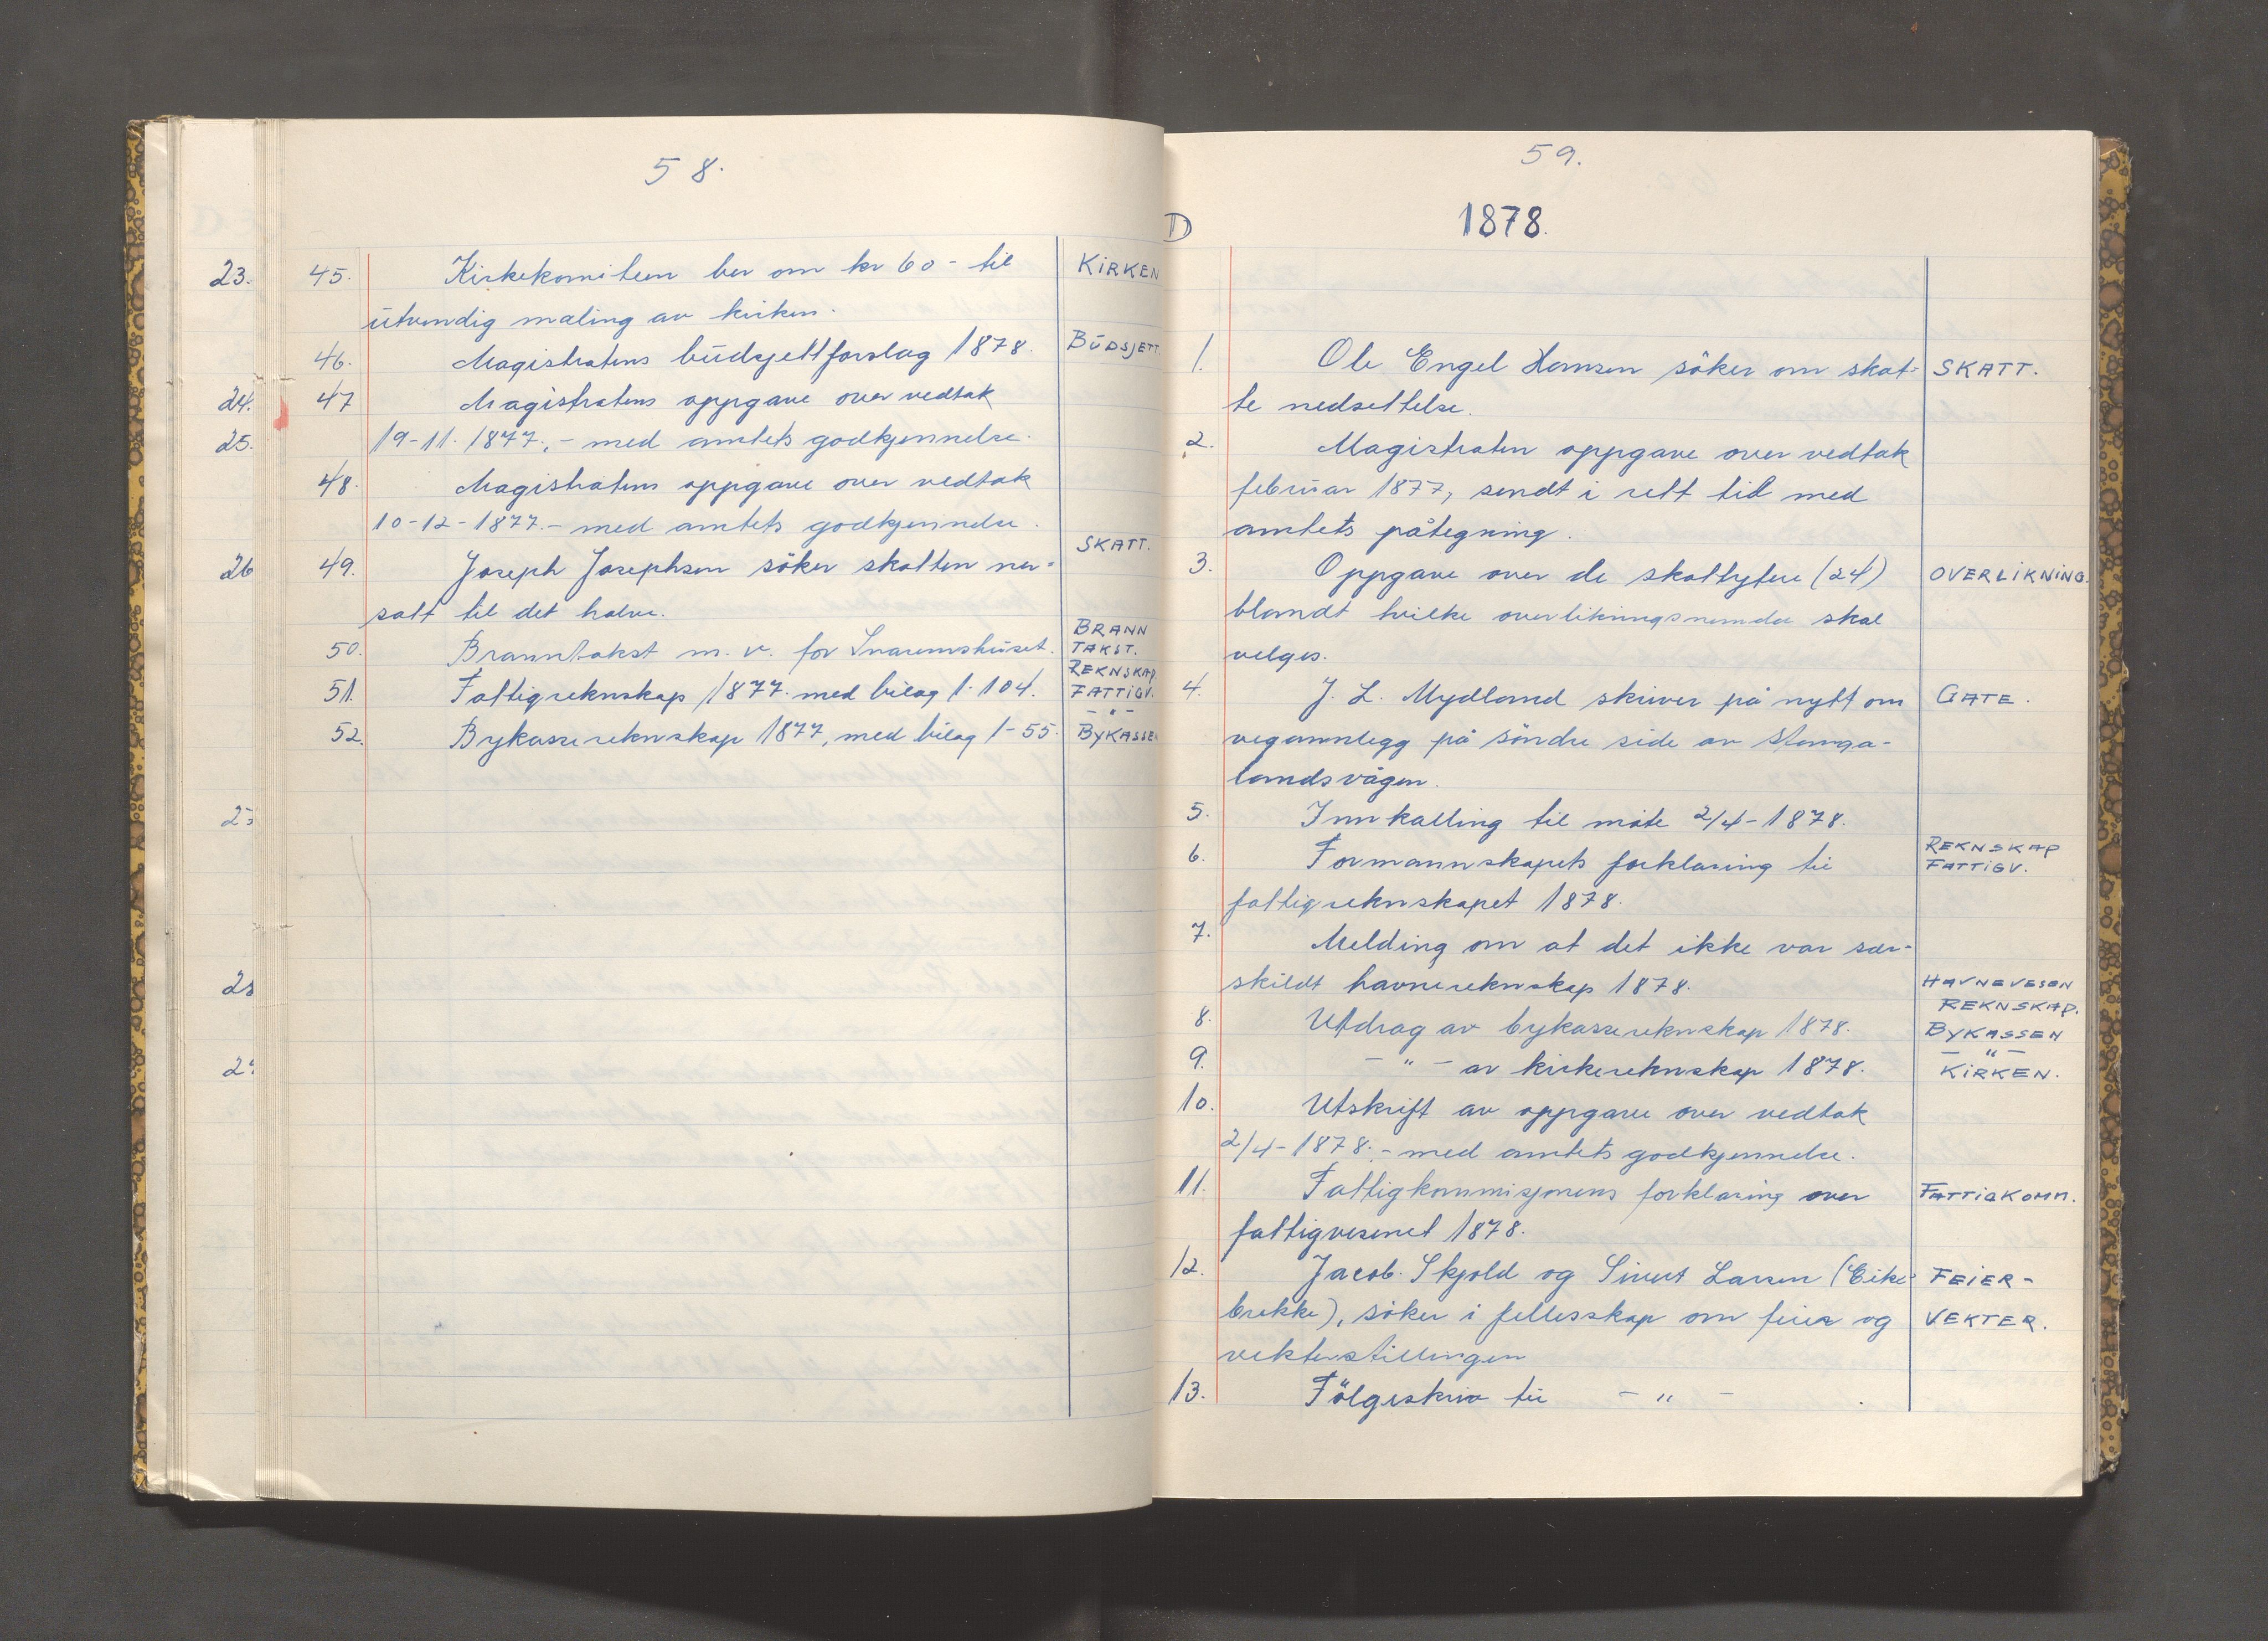 58.
23. 45. Kirkekomiteen ber om kr 60- til KIRKEN
utvendig maling av kirken.
46. Magistratens budsjettforslag 1878. BUDSJETT.
24. 47 Magistratens oppgave over vedtak
25. 19-11-1877,- med amtets godkjennelse.
48. Magistratens oppgave over vedtak
10-12-1877.- med amtets godkjennelse.
SKATT.
26 49. Joseph Josephsen söker skatten ner-
satt til det halve.
BRANN
50. Branntakst m. v. for Svarenshuset. TAKST.
REKNSKAP.
51. Fattigreknskap 1877. med bilag 1-104. FATTIGV.
- " -
52. Bykassereknskap 1877, med bilag 1-55. BYKASSEN
59.
D 1878.
1. Ole Engel Hansen söker om skat- SKATT.
te nedsettelse.
2. Magistraten oppgave over vedtak
februar 1877, sendt i rett tid med
amtets påtegning.
3. Oppgave over de skattytere (24) OVERLIKNING.
blandt hvilke overlikningsnemda skal
velges.
4. J. L. Mydland skriver på nytt om GATE.
vegannlegg på söndre side av Stanga-
landsvågen.
5. Innkalling til möte 2/4-1878.
6. Formannskapets forklaring til REKNSKAP
FATTIGV.
fattigreknskapet 1878.
7. Melding om at det ikke var sær-
skildt havnereknskap 1878. HAVNEVESEN
REKNSKAP.
8. Utdrag av bykassereknskap 1878. BYKASSEN
- " -
9. - " - av kirkereknskap 1878. KIRKEN.
10. Utskrift av oppgave over vedtak
2/4-1878.- med amtets godkjennelse.
11. Fattigkommisjonens forklaring over FATTIGKOMM.
fattigvesenet 1878.
12. Jacob Skjold og Sivert Larsen (Eike- FEIER-
brekke), söker i fellesskap om feier og VEKTER.
vekterstillingen
13. Fölgeskriv til - " - .